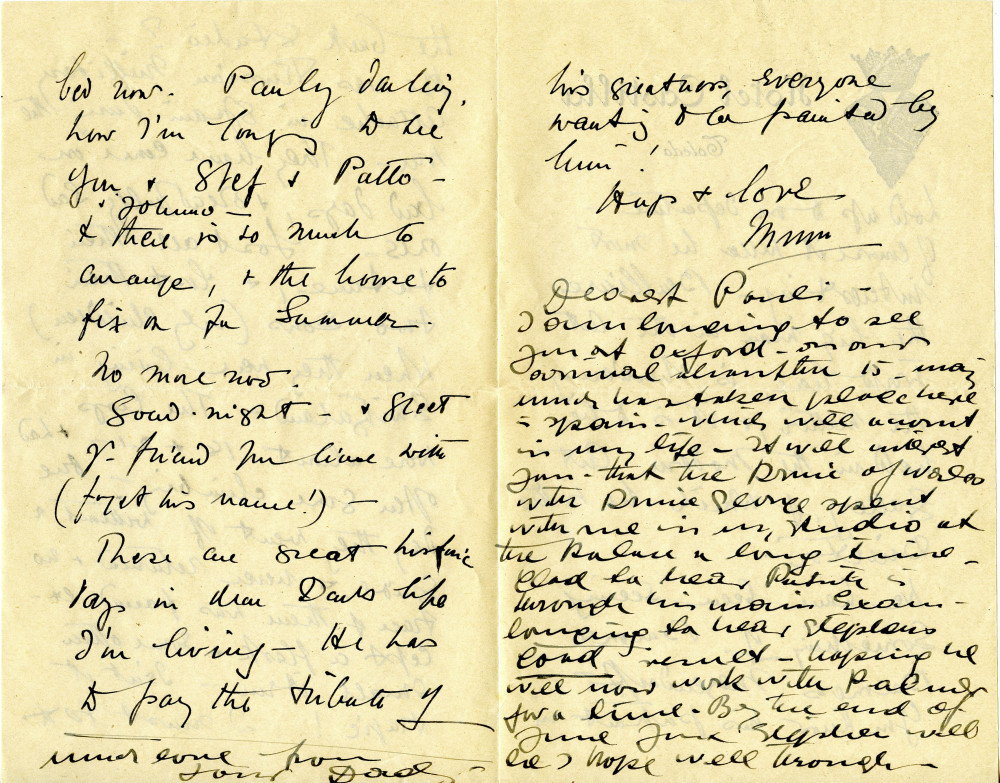 bed now. Pauly darling,
how I'm longing to see
you & Stef & Patto -
& Johnno -
& there is so much to
arrange, & the house to
fix on for Summer.
No more now.
Good-night - & greet
yr friend you live with
(forget his name!) -
These are great historic
days in dear Dad's life
I'm living - He has
to pay the tribute of
his greatness, everyone
wanting to be painted by
him!
Hugs & love
Mum
Dearest Paul -
I am longing to see
you at Oxford - on our
arrival about the 15 - may
much has taken place here
in Spain - which will count
in my life - It will interest
you - that the Prince of Wales
with Prince George spent
with me in my studio at
the Palace a long time -
Glad to hear Patrick is
through his main Exam -
longing to hear Stephens
good result - hoping he
will now work with Palmer
for a time - By the end of
June Stephen will
be I hope well through -
much love from
Your Dady -
Hotel Castilla
Toledo